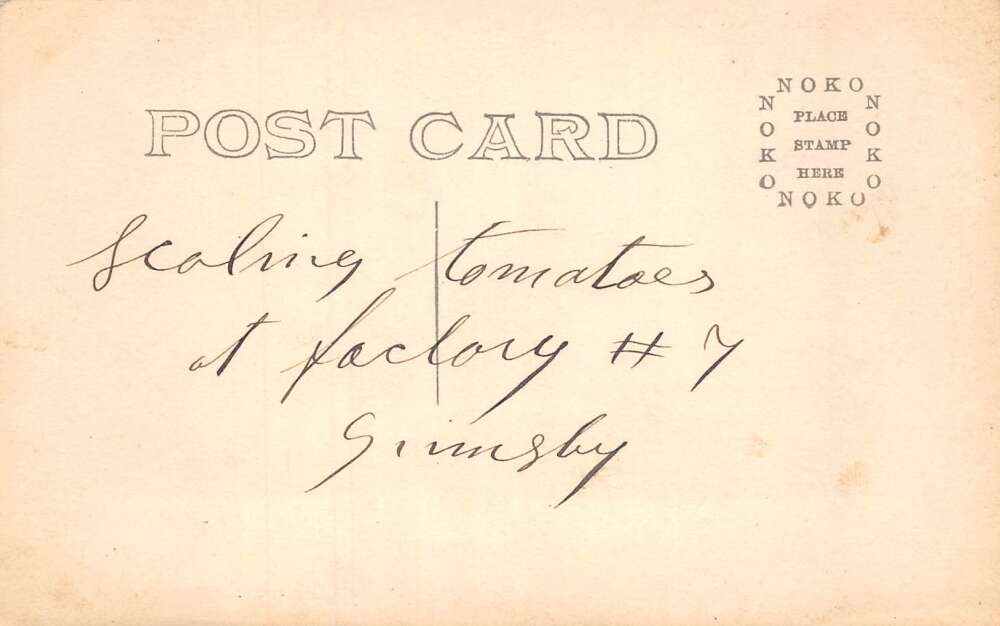 POST CARD
NOKO
NOKO
PLACE
STAMP
HERE
NOKO
NOKO
Scaling tomatoes
at factory # 7
Grimsby